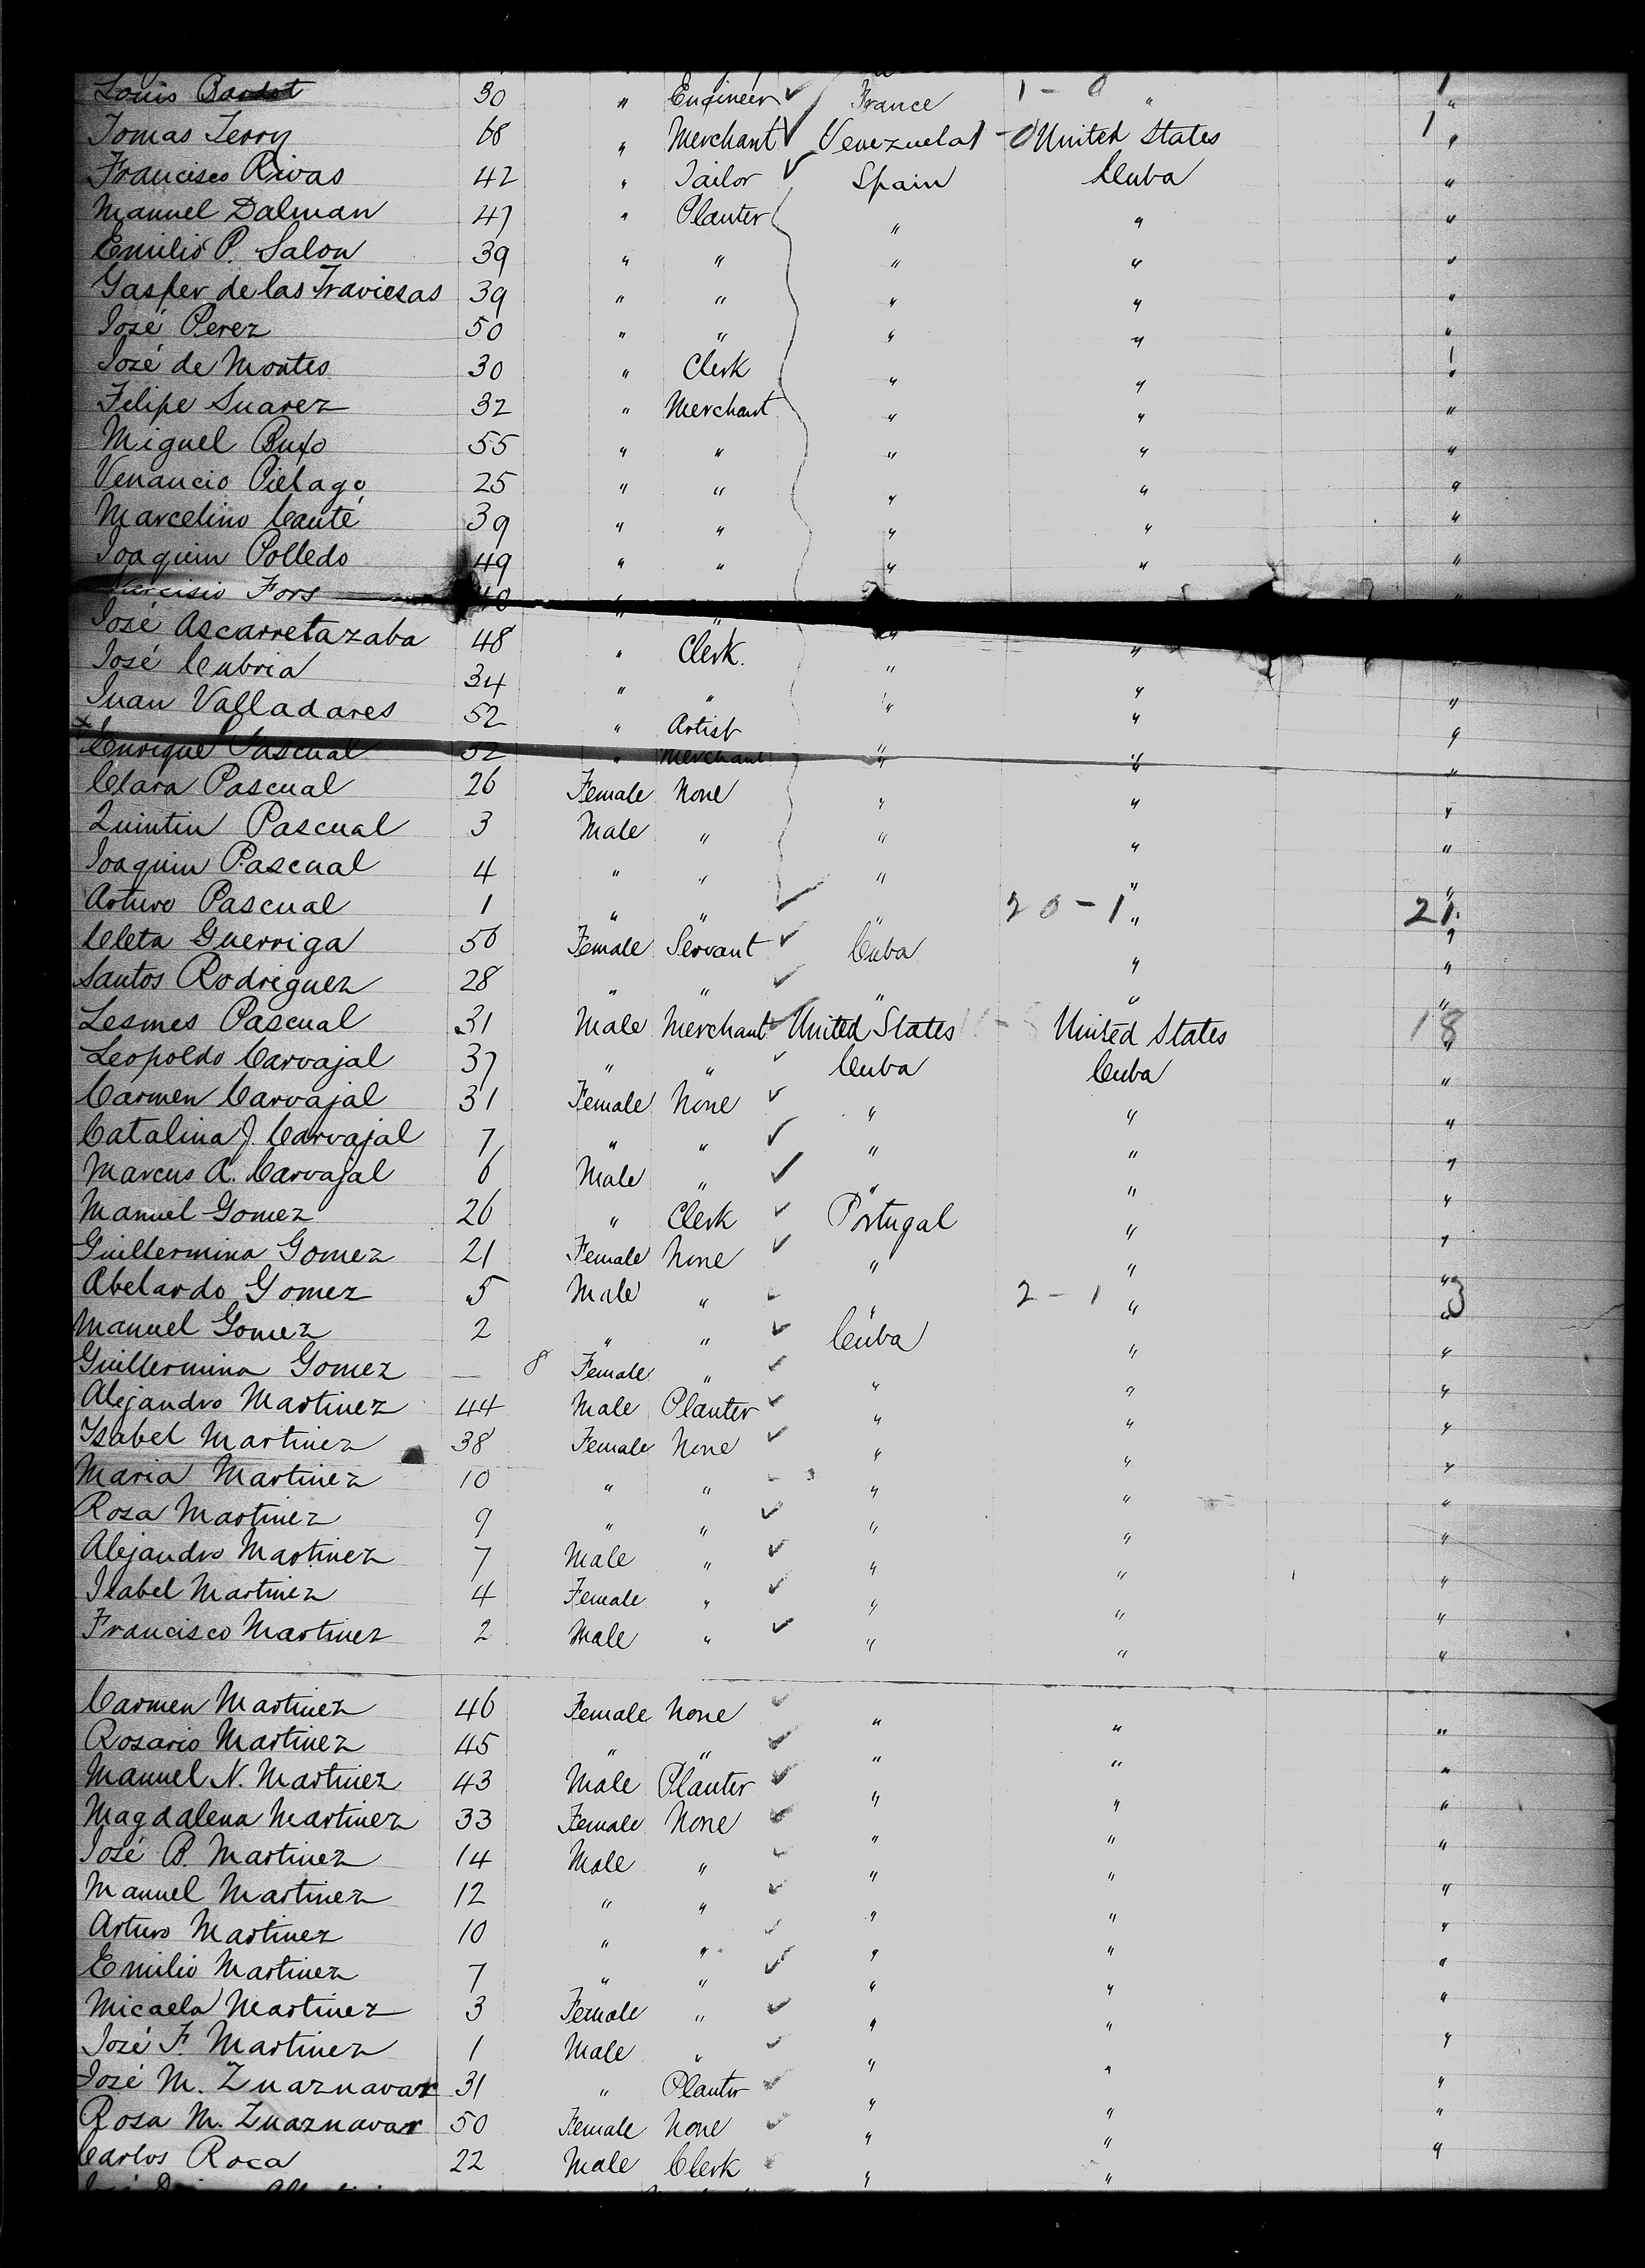 Louis Bardot 30 " Engineer ✓ France 1 - 0 " 1 "
Tomas Terry 68 " Merchant ✓ Venezuela 1 - 0 United States 1 "
Francisco Rivas 42 " Tailor ✓ Spain Cuba "
Manuel Dalman 47 " Planter " " "
Emilio P. Salon 39 " " " " "
Gasper de las Traviesas 39 " " " " "
José Perez 50 " " " " "
José de Montes 30 " Clerk " " "
Felipe Suarez 32 " Merchant " " "
Miguel Buxo 55 " " " " "
Venancio Pielago 25 " " " " "
Marcelino Canté 39 " " " " "
Joaquin Polledo 49 " " " " "
Narcisio Fors 40 " " " "
José Ascarretazaba 48 " Clerk. " "
José Cubria 34 " " " " "
Juan Valladares 52 " Artist " " "
Enrique Pascual 32 " Merchant " " "
Clara Pascual 26 Female None " " "
Quintin Pascual 3 Male " " " "
Joaquin Pascual 4 " " " " "
Arturo Pascual 1 " " ✓ " 20 - 1 " 21 "
Cleta Guerriga 50 Female Servant ✓ Cuba " "
Santos Rodriguez 28 " " ✓ " " "
Lesmes Pascual 31 Male Merchant ✓ United States United States 18 "
Leopoldo Carvajal 37 " " ✓ Cuba Cuba "
Carmen Carvajal 31 Female None ✓ " " "
Catalina J. Carvajal 7 " " ✓ " " "
Marcus A. Carvajal 6 Male " ✓ " " "
Manuel Gomez 26 " Clerk ✓ Portugal " "
Guillermina Gomez 21 Female None ✓ " " "
Abelardo Gomez 5 Male " ✓ " 2 - 1 " 3 "
Manuel Gomez 2 " " ✓ Cuba " "
Guillermina Gomez — 8 Female " ✓ " " "
Alejandro Martinez 44 Male Planter ✓ " " "
Ysabel Martinez 38 Female None ✓ " " "
Maria Martinez 10 " " " " "
Rosa Martinez 9 " " ✓ " " "
Alejandro Martinez 7 Male " ✓ " " "
Isabel Martinez 4 Female " ✓ " " "
Francisco Martinez 2 Male " ✓ " " "
Carmen Martinez 46 Female None ✓ " " "
Rosario Martinez 45 " " ✓ " " "
Manuel N. Martinez 43 Male Planter ✓ " " "
Magdalena Martinez 33 Female None ✓ " " "
José B. Martinez 14 Male " ✓ " " "
Manuel Martinez 12 " " ✓ " " "
Arturo Martinez 10 " " ✓ " " "
Emilio Martinez 7 " " ✓ " " "
Micaela Martinez 3 Female " ✓ " " "
José F. Martinez 1 Male " ✓ " " "
José M. Zuaznavar 31 " Planter ✓ " " "
Rosa M. Zuaznavar 50 Female None ✓ " " "
Carlos Roca 22 Male Clerk ✓ " " "